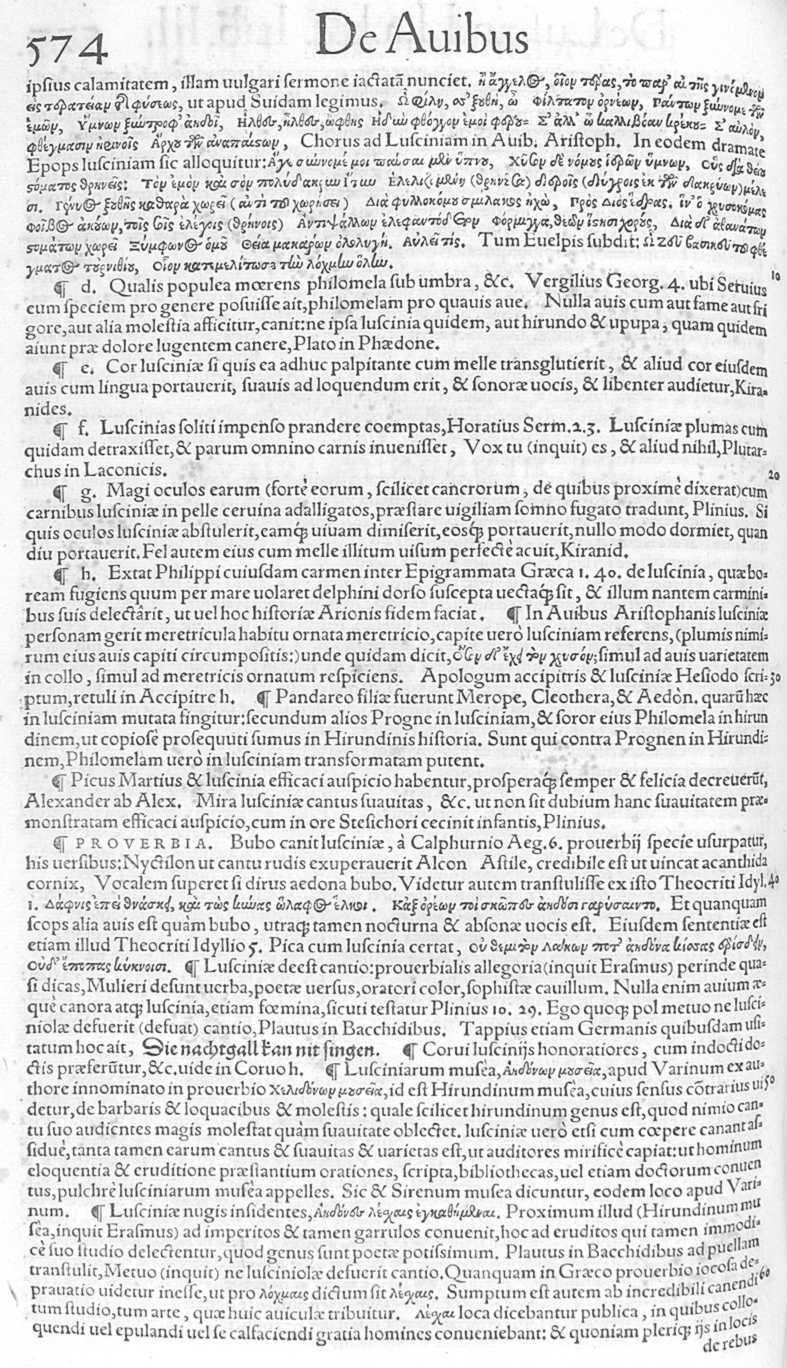 574
De Avibus
ipsius calamitatem, illam uulgari sermone iactatã nunciet.
ut apud Suidam legimus.
Chorus ad Lusciniam in Auib. Aristoph. In eodem dramate
Epops lusciniam sic alloquitur:
Tum Euelpis subdit:
¶ d. Qualis populea mœrens philomela sub umbra, &c. Vergilius Georg. 4. ubi Seruius 10
eum speciem pro genere posuisse ait, philomelam pro quauis aue. Nulla auis cum aut fame aut fri
gore, aut alia molestia afficitur, canit: ne ipsa luscinia quidem, aut hirundo & upupa, quam quidem
aiunt præ dolore lugentem canere, Plato in Phædone.
¶ e. Cor lusciniæ si quis ea adhuc palpitante cum melle transglutierit, & aliud cor eiusdem
auis cum lingua portauerit, suauis ad loquendum erit, & sonoræ uocis, & libenter audietur, Kira-
nides.
¶ f. Luscinias soliti impenso prandere coemptas, Horatius Serm. 2. 3. Lusciniæ plumas cum
quidam detraxisset, & parum omnino carnis inuenisset, Vox tu (inquit) es, & aliud nihil, Plutar-
chus in Laconicis. 20
¶ g. Magi oculos earum (fortè eorum, scilicet cancrorum, de quibus proximè dixerat) cum
carnibus lusciniæ in pelle ceruina adalligatos, præstare uigiliam somno fugato tradunt, Plinius. Si
quis oculos lusciniæ abstulerit, eamq; uiuam dimiserit, eosq; portauerit, nullo modo dormiet, quan
diu portauerit. Fel autem eius cum melle illitum uisum perfectè acuit, Kiranid.
¶ h. Extat Philippi cuiusdam carmen inter Epigrammata Græca 1. 40. de luscinia, quæ bo-
ream fugiens quum per mare uolaret delphini dorso suscepta uectaq; sit, & illum nantem carmini-
bus suis delectârit, ut uel hoc historiæ Arionis fidem faciat. ¶ In Auibus Aristophanis lusciniæ
personam gerit meretricula habitu ornata meretricio, capite uerò lusciniam referens, (plumis nimi-
rum eius auis capiti circumpositis:) unde quidam dicit, simul ad auis uarietatem
in collo, simul ad meretricis ornatum respiciens. Apologum accipitris & lusciniæ Hesiodo scri- 30
ptum, retuli in Accipitre h. ¶ Pandareo filiæ fuerunt Merope, Cleothera, & Aedòn. quarũ hæc
in lusciniam mutata fingitur: secundum alios Progne in lusciniam, & soror eius Philomela in hirun
dinem, ut copiosè prosequuti sumus in Hirundinis historia. Sunt qui contra Prognen in Hirundi-
nem, Philomelam uerò in lusciniam transformatam putent.
¶ Picus Martius & luscinia efficaci auspicio habentur, prosperaq; semper & felicia decreuerũt,
Alexander ab Alex. Mira lusciniæ cantus suauitas, &c. ut non sit dubium hanc suauitatem præ-
monstratam efficaci auspicio, cum in ore Stesichori cecinit infantis, Plinius.
¶ PROVERBIA. Bubo canit lusciniæ, à Calphurnio Aeg. 6. prouerbij specie usurpatur,
his uersibus: Nyctilon ut cantu rudis exuperauerit Alcon Astile, credibile est ut uincat acanthida
cornix, Vocalem superet si dirus aedona bubo. Videtur autem transtulisse ex isto Theocriti Idyl. 40
1. Et quanquam
scops alia auis est quàm bubo, utraq; tamen nocturna & absonæ uocis est. Eiusdem sententiæ est
etiam illud Theocriti Idyllio 5. Pica cum luscinia certat,
¶ Lusciniæ deest cantio: prouerbialis allegoria (inquit Erasmus) perinde qua-
si dicas, Mulieri desunt uerba, poetæ uersus, oratori color, sophistæ cauillum. Nulla enim auium æ-
què canora atq; luscinia, etiam fœmina, sicuti testatur Plinius 10. 29. Ego quoq; pol metuo ne lusci-
niolæ defuerit (defuat) cantio, Plautus in Bacchidibus. Tappius etiam Germanis quibusdam usi-
tatum hoc ait, Die nachtgall kan nit singen. ¶ Corui luscinijs honoratiores, cum indocti do-
ctis præferũtur, &c. uide in Coruo h. ¶ Lusciniarum musêa, apud Varinum ex au-
thore innominato in prouerbio id est Hirundinum musêa, cuius sensus cõtrarius ui 50
detur, de barbaris & loquacibus & molestis: quale scilicet hirundinum genus est, quod nimio can-
tu suo audientes magis molestat quàm suauitate oblectet. lusciniæ uerò etsi cum cœpere canant as-
siduè, tanta tamen earum cantus & suauitas & uarietas est, ut auditores mirificè capiat: ut hominum
eloquentia & eruditione præstantium orationes, scripta, bibliothecas, uel etiam doctorum conuen
tus, pulchrè lusciniarum musêa appelles. Sic & Sirenum musea dicuntur, eodem loco apud Vari-
num. ¶ Lusciniæ nugis insidentes, Proximum illud (Hirundinum mu
sêa, inquit Erasmus) ad imperitos & tamen garrulos conuenit, hoc ad eruditos qui tamen immodi-
cè suo studio delectentur, quod genus sunt poetæ potissimum. Plautus in Bacchidibus ad puellam
transtulit, Metuo (inquit) ne lusciniolæ defuerit cantio. Quanquam in Græco prouerbio iocosa de- 60
prauatio uidetur inesse, ut pro λόχμαις dictum sit λέσχαις. Sumptum est autem ab incredibili canendi
tum studio, tum arte, quæ huic auiculæ tribuitur. λέσχαι loca dicebantur publica, in quibus collo-
quendi uel epulandi uel se calfaciendi gratia homines conueniebant: & quoniam pleriq; ijs in locis
de rebus